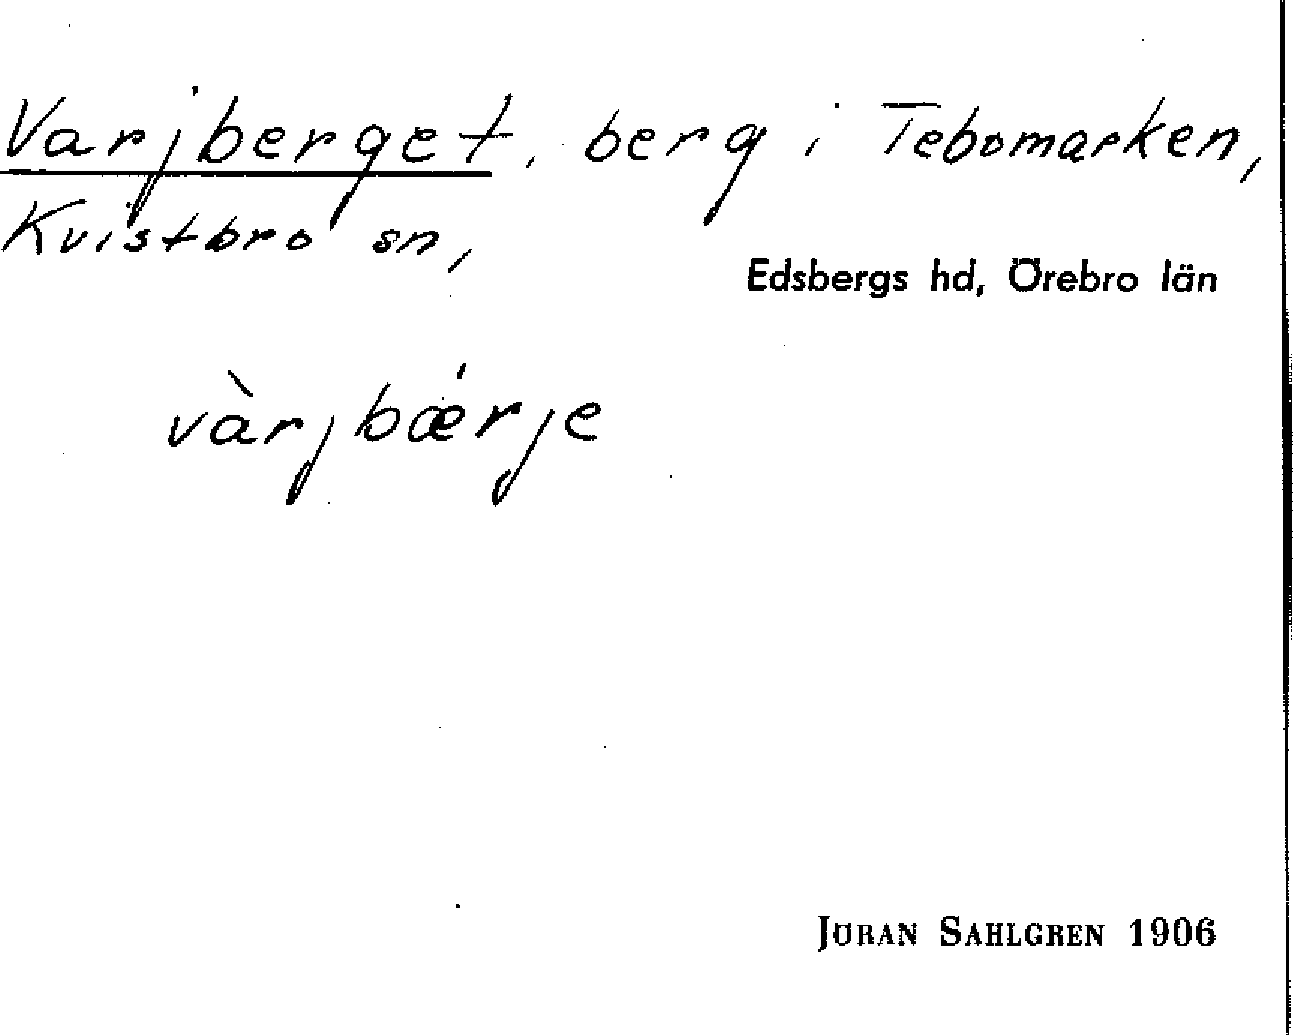 Varjberget, berg i Tebomarken,
Kvistbro sn,
Edsbergs hd, Örebro län
vàrjbǽrje
JÖRAN SAHLGREN 1906